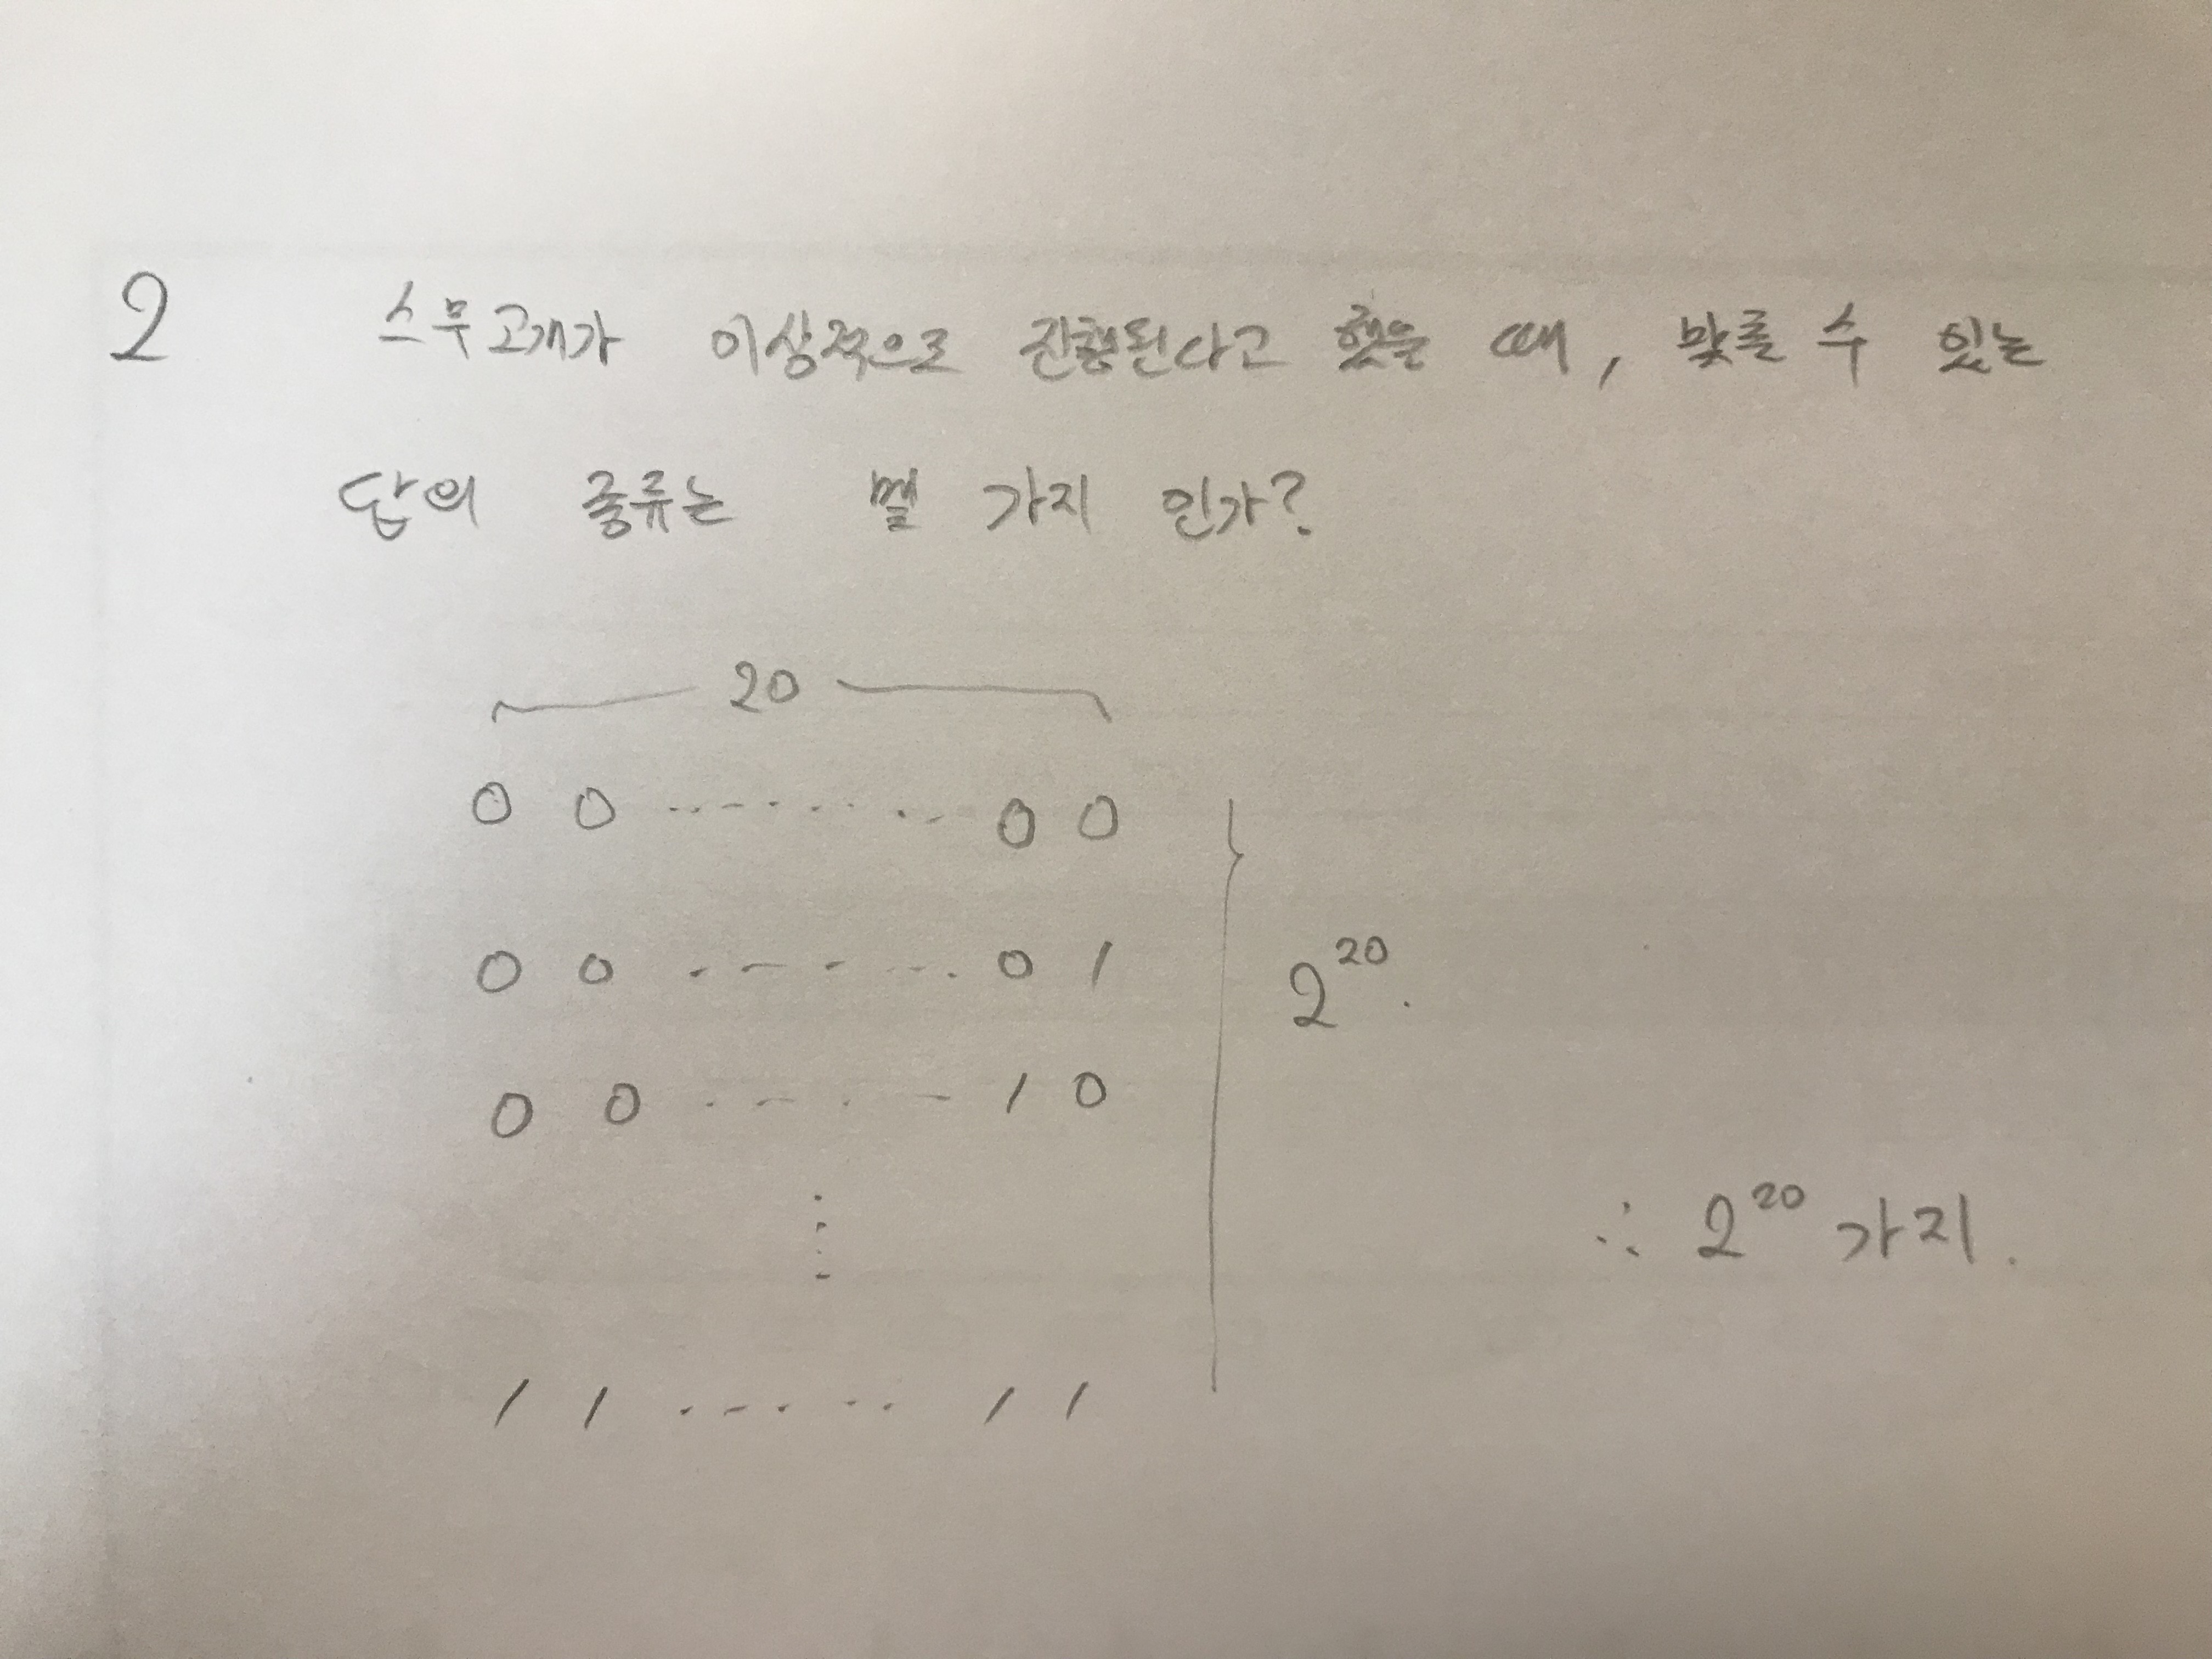 2 스무고개가 이상적으로 진행된다고 했을 때, 맞출 수 있는
답의 종류는 몇 가지 인가?
20
0 0 ········ 0 0
0 0 ········ 0 1
0 0 ········ 1 0
⋮
1 1 ········ 1 1
2²⁰.
∴ 2²⁰ 가지.